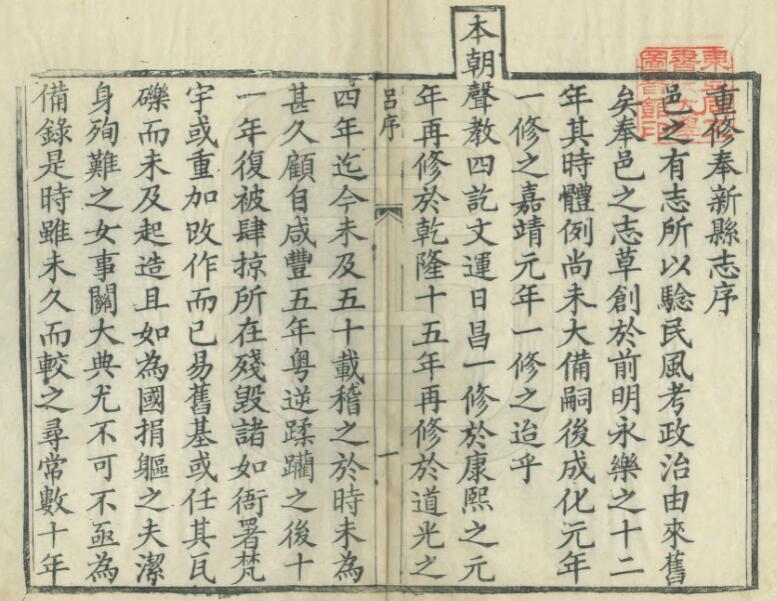 重修奉新縣志序
邑之有志所以驗民風考政治由來舊
矣奉邑之志草創於前明永樂之十二
年其時體例尚未大備嗣後成化元年
一修之嘉靖元年一修之迨乎
本朝聲教四訖文運日昌一修於康熙之元
年再修於乾隆十五年再修於道光之
呂序
一
四年迄今未及五十載稽之於時未為
甚久顧自咸豐五年粤逆蹂躪之後十
一年復被肆掠所在殘毀諸如衙署梵
宇或重加改作而已易舊基或任其瓦
礫而未及起造且如為國捐軀之夫潔
身殉難之女事關大典尤不可不亟為
備錄是時雖未久而較之尋常數十年